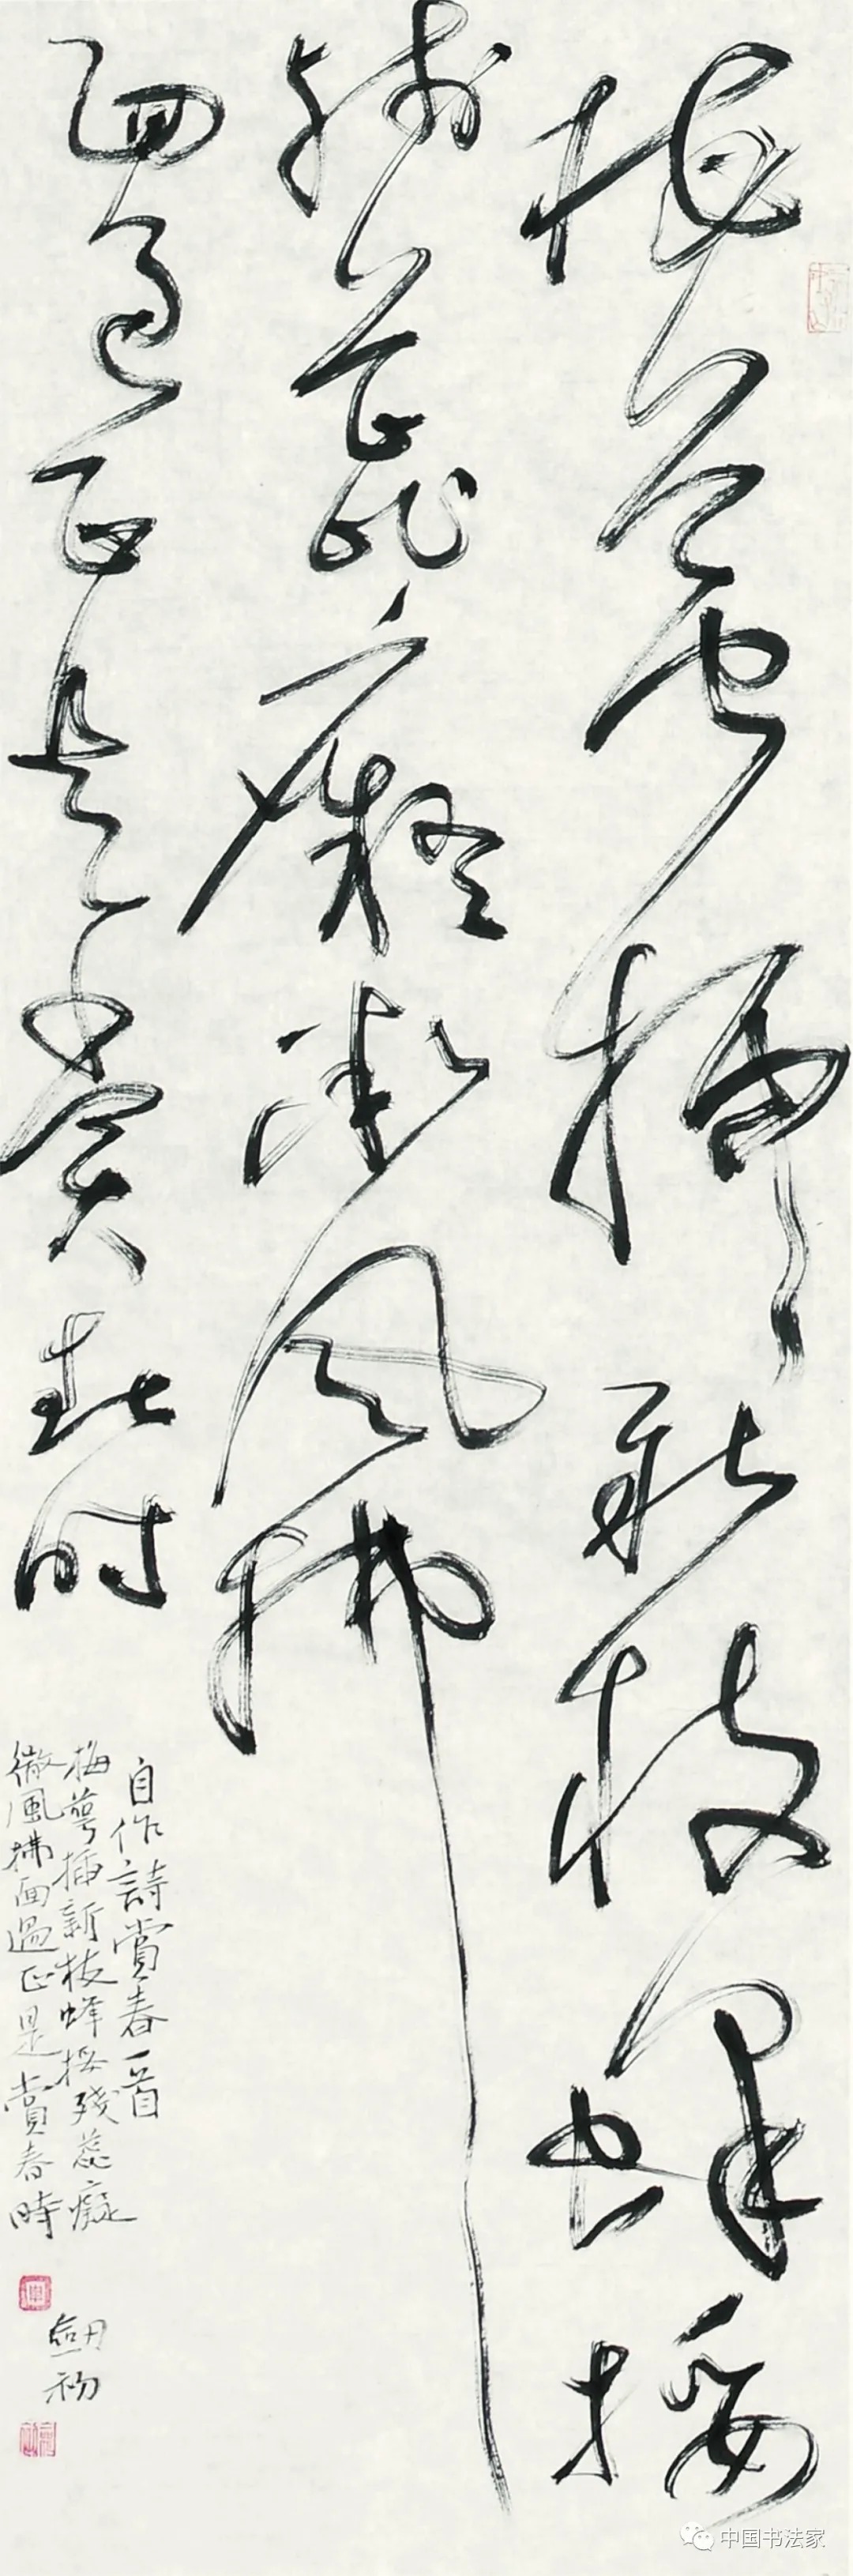 梅萼插新枝蜂挼
残蕊痴微风拂
面過正是赏春时
自作詩賞春一首
梅萼插新枝蜂挼殘蕊癡
微風拂面過正是賞春時
劍初
中国书法家